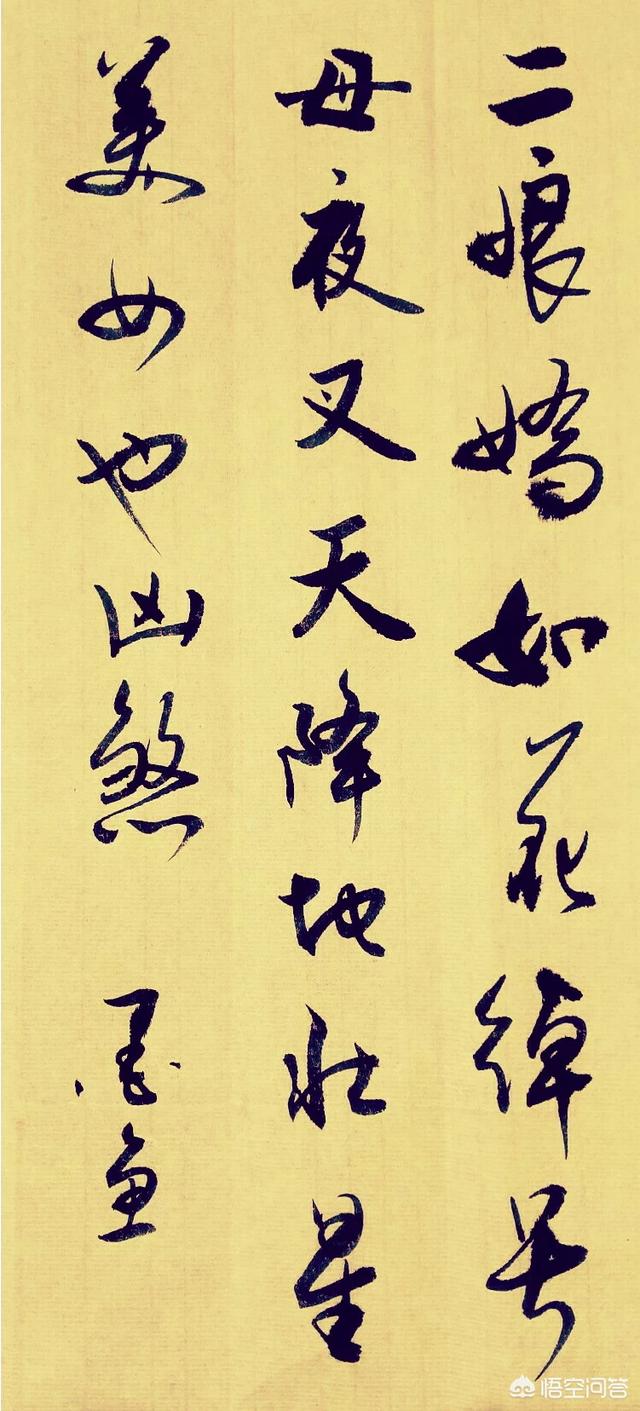 二娘娇如花绰号
母夜叉天降地壮星
美女也凶煞 墨鱼
悟空问答